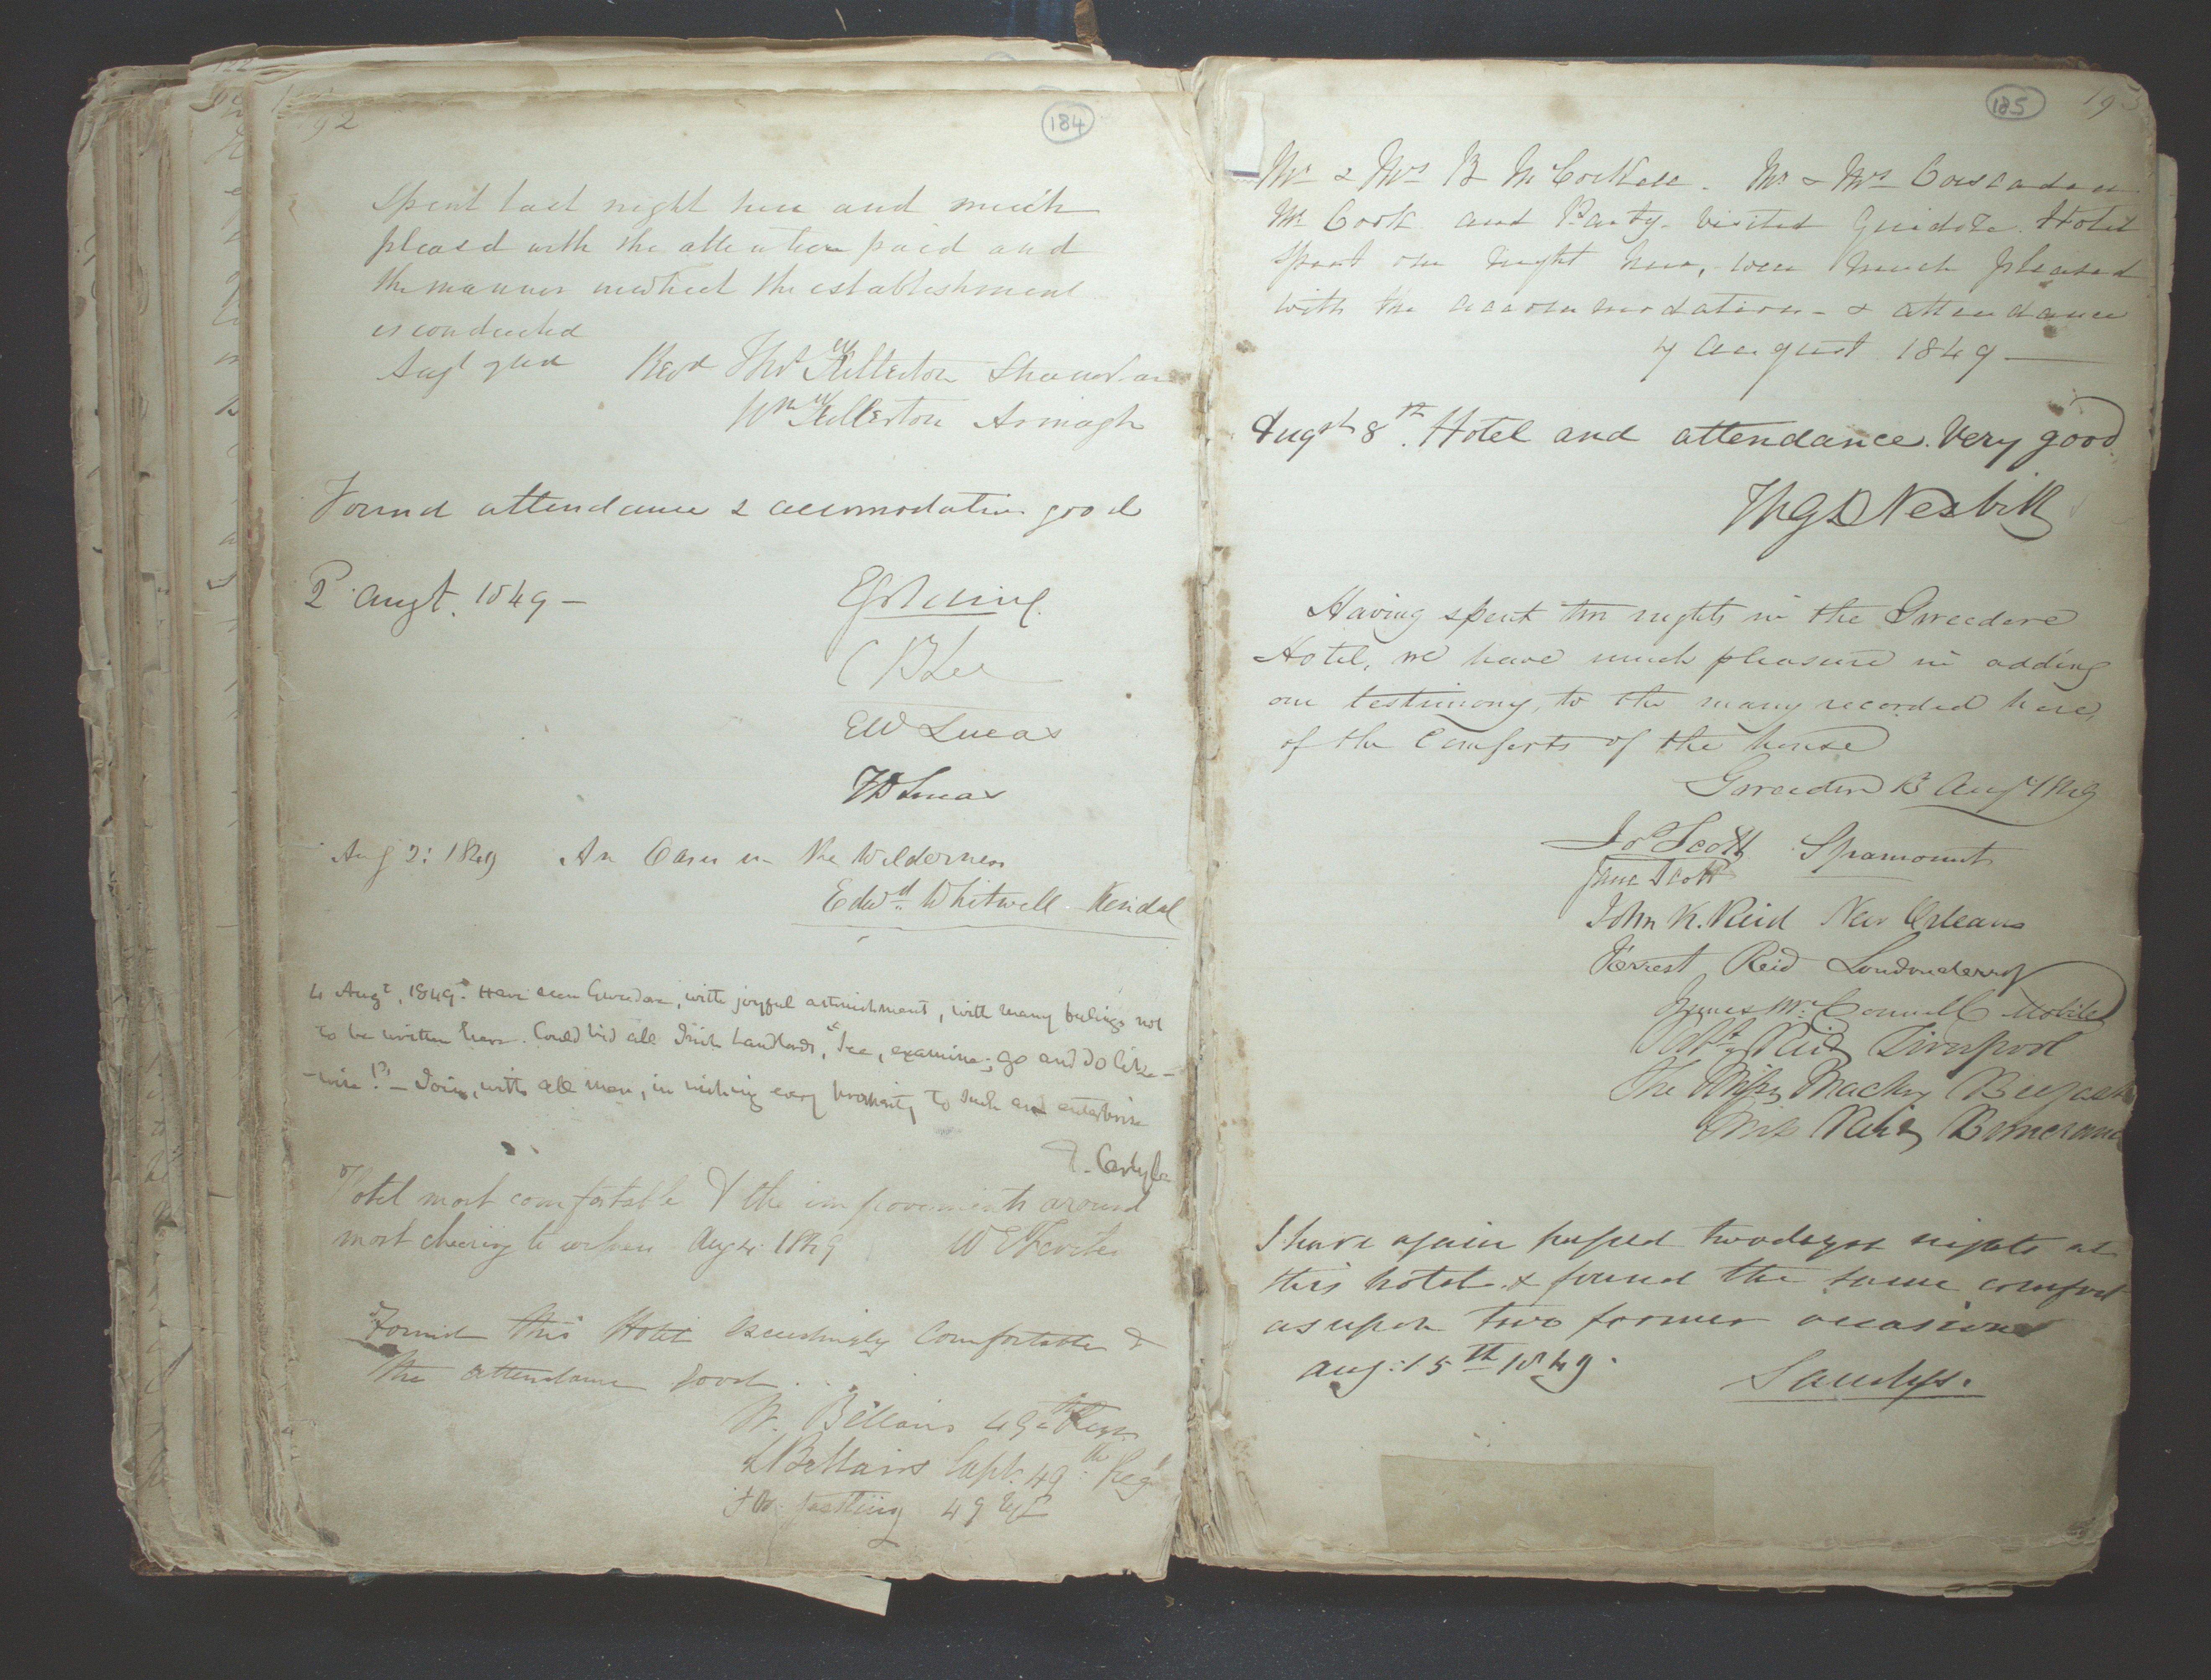 192
184
Spent last night here and much
pleased with the attention paid and
the manner in which the establishment
is conducted
Augt 2nd Revd Thos Fullerton
Wm Fullerton Armagh
Found attendance & accomodation good
2 Augt. 1849 –
C B Lee
EW Lucas
Lucas
Aug 2: 1849 An Oasis in the Wilderness
Edwd Whitwell Kendal
4 Augt, 1849. Have seen Gweedore, with joyful astonishment, with many feelings not
to be written here. Could bid all Irish Landlords, "See, examine; go and do like-
-wise!" – Join, with all men, in wishing every prosperity to such an enterprise
T. Carlyle
Hotel most comfortable & the improvements around
most cheering to witness Aug 4. 1849 W E Forster
Found this Hotel exceedingly comfortable &
the attendance good.
W. Bellairs 49th Regt
Bellairs Capt. 49th Regt
49 Regt
185
193
Mr & Mrs B McCorkell. Mr & Mrs
Mr Cook and Party. Visited Guidore Hotel
Spent one night here, were much pleased
with the accommodation & attendance
7 August 1849 —
Augst 8th. Hotel and attendance. Very good
Nesbitt
Having spent two nights in the Gweedore
Hotel, we have much pleasure in adding
our testimony, to the many recorded here,
of the Comforts of the house
Gweedore 13 Augt 1849
Jas Scott Spamount
Jane Scott
John K. Reid New Orleans
Forrest Reid Londonderry
James McConnell Mobile
Robt Reid Liverpool
The Misses Mackey Belfast
Miss Reid
I have again passed two days & nights at
this hotel & found the same comfort
as upon two former occasions
Aug: 15th 1849.
Sandys.